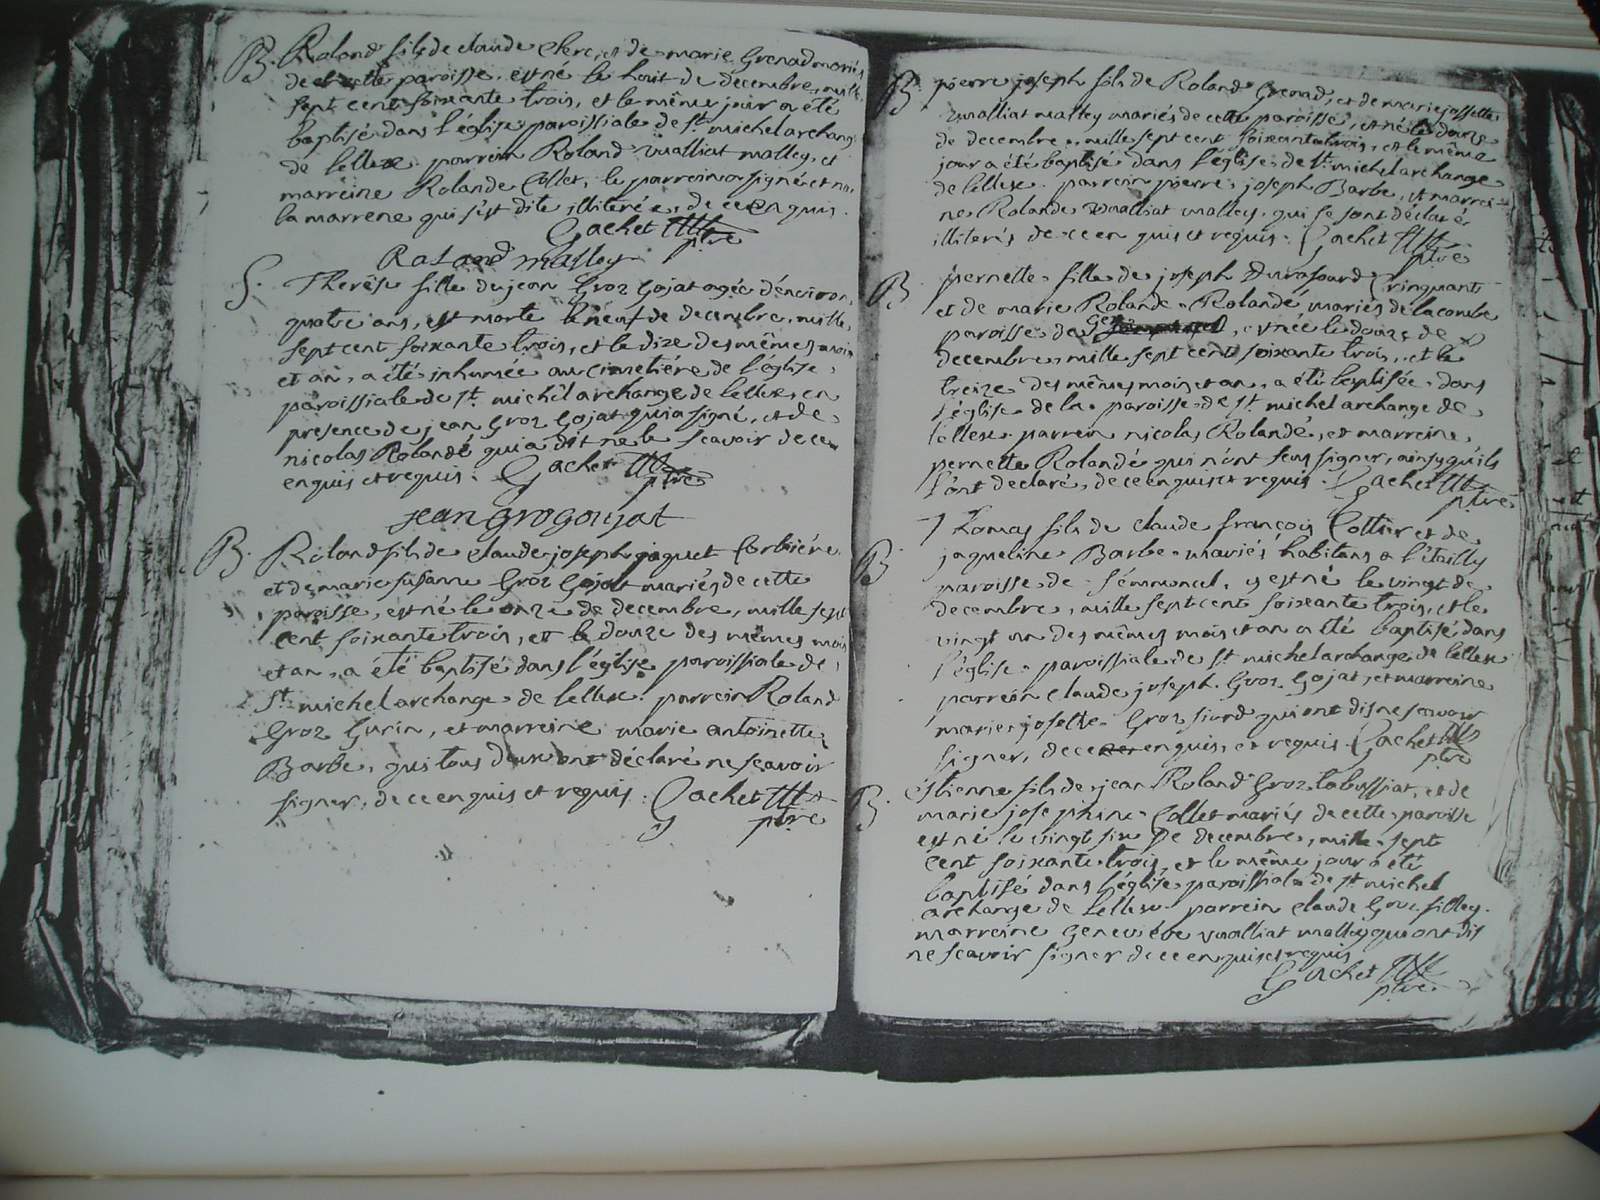 B. Roland fils de claude Clerc, et de marie Grenad mariés
de cette paroisse, est né le huit de decembre, mille
sept cent soixante trois, et le même jour a été
baptisé dans l'église paroissiale de st. michel archange
de lellex. parrein Roland vualliat malley, et
marreine Rolande Collet, le parrein a signé et non
la marrene qui s'est dite illiterée, de ce enquis.
Gachet ptre
Roland malley
S. Therése fille de jean Groz Gojat agée d'environ
quatre ans, est morte le neuf de decembre, mille
sept cent soixante trois, et le dize des mêmes mois
et an, a été inhumée au cimetiére de l'église
paroissiale de st. michel archange de lellex, en
presence de jean Groz Gojat qui a signé, et de
nicolas Rolandé qui a dit ne le scavoir de ce
enquis et requis. Gachet ptre
jean gro goujat
B. Roland fils de claude joseph jaquet Corbiére
et de marie susanne Groz Gojat mariés de cette
paroisse, est né le onze de decembre, mille sept
cent soixante trois, et le douze des mêmes mois
et an, a été baptisé dans l'église paroissiale de
st. michel archange de lellex. parrein Roland
Groz Gurin, et marreine marie antoinette
Barbe, qui tous deux ont déclaré ne scavoir
signer, de ce enquis et requis. Gachet ptre
B. pierre joseph fils de Roland Grenad, et de marie josette
vualliat malley mariés de cette paroisse, est né le douze
de decembre, mille sept cent soixante trois, et le même
jour a été baptisé dans l'église de st. michel archange
de lellex. parrein pierre joseph Barbe, et marrei-
ne Rolande vualliat malley, qui se sont déclaré
illiterés de ce enquis et requis. Gachet ptre
B. pernette fille de joseph Durafourd
et de marie Rolande Rolandé mariés de la combe
paroisse de Gex, est née le douze de
decembre, mille sept cent soixante trois, et le
treize des mêmes mois et an, a été baptisée dans
l'église de la paroisse de st. michel archange de
lellex. parrein nicolas Rolandé, et marreine
pernette Rolandé qui n'ont sçu signer, ainsy qu'ils
l'ont declaré, de ce enquis et requis. Gachet ptre
B. Thomas fils de claude françois Cottier et de
jaqueline Barbe mariés habitans a l'étailly
paroisse de semmoncel, y est né le vingt de
decembre, mille sept cent soixante trois, et le
vingt un des mêmes mois et an a été baptisé dans
l'église paroissiale de st. michel archange de lellex
parrein claude joseph Groz Gojat, et marreine
marie josette Groz fiard qui ont dis ne scavoir
signer, de ce enquis, et requis. Gachet ptre
B. Etienne fils de jean Roland Groz tabussiat, et de
marie josephine Collet mariés de cette paroisse
est né le vingt six de decembre, mille sept
cent soixante trois, et le même jour a été
baptisé dans l'église paroissiale de st. michel
archange de lellex. parrein claude Groz filley.
marreine Genevéve vualliat malley qui ont dis
ne scavoir signer de ce enquis et requis
Gachet ptre